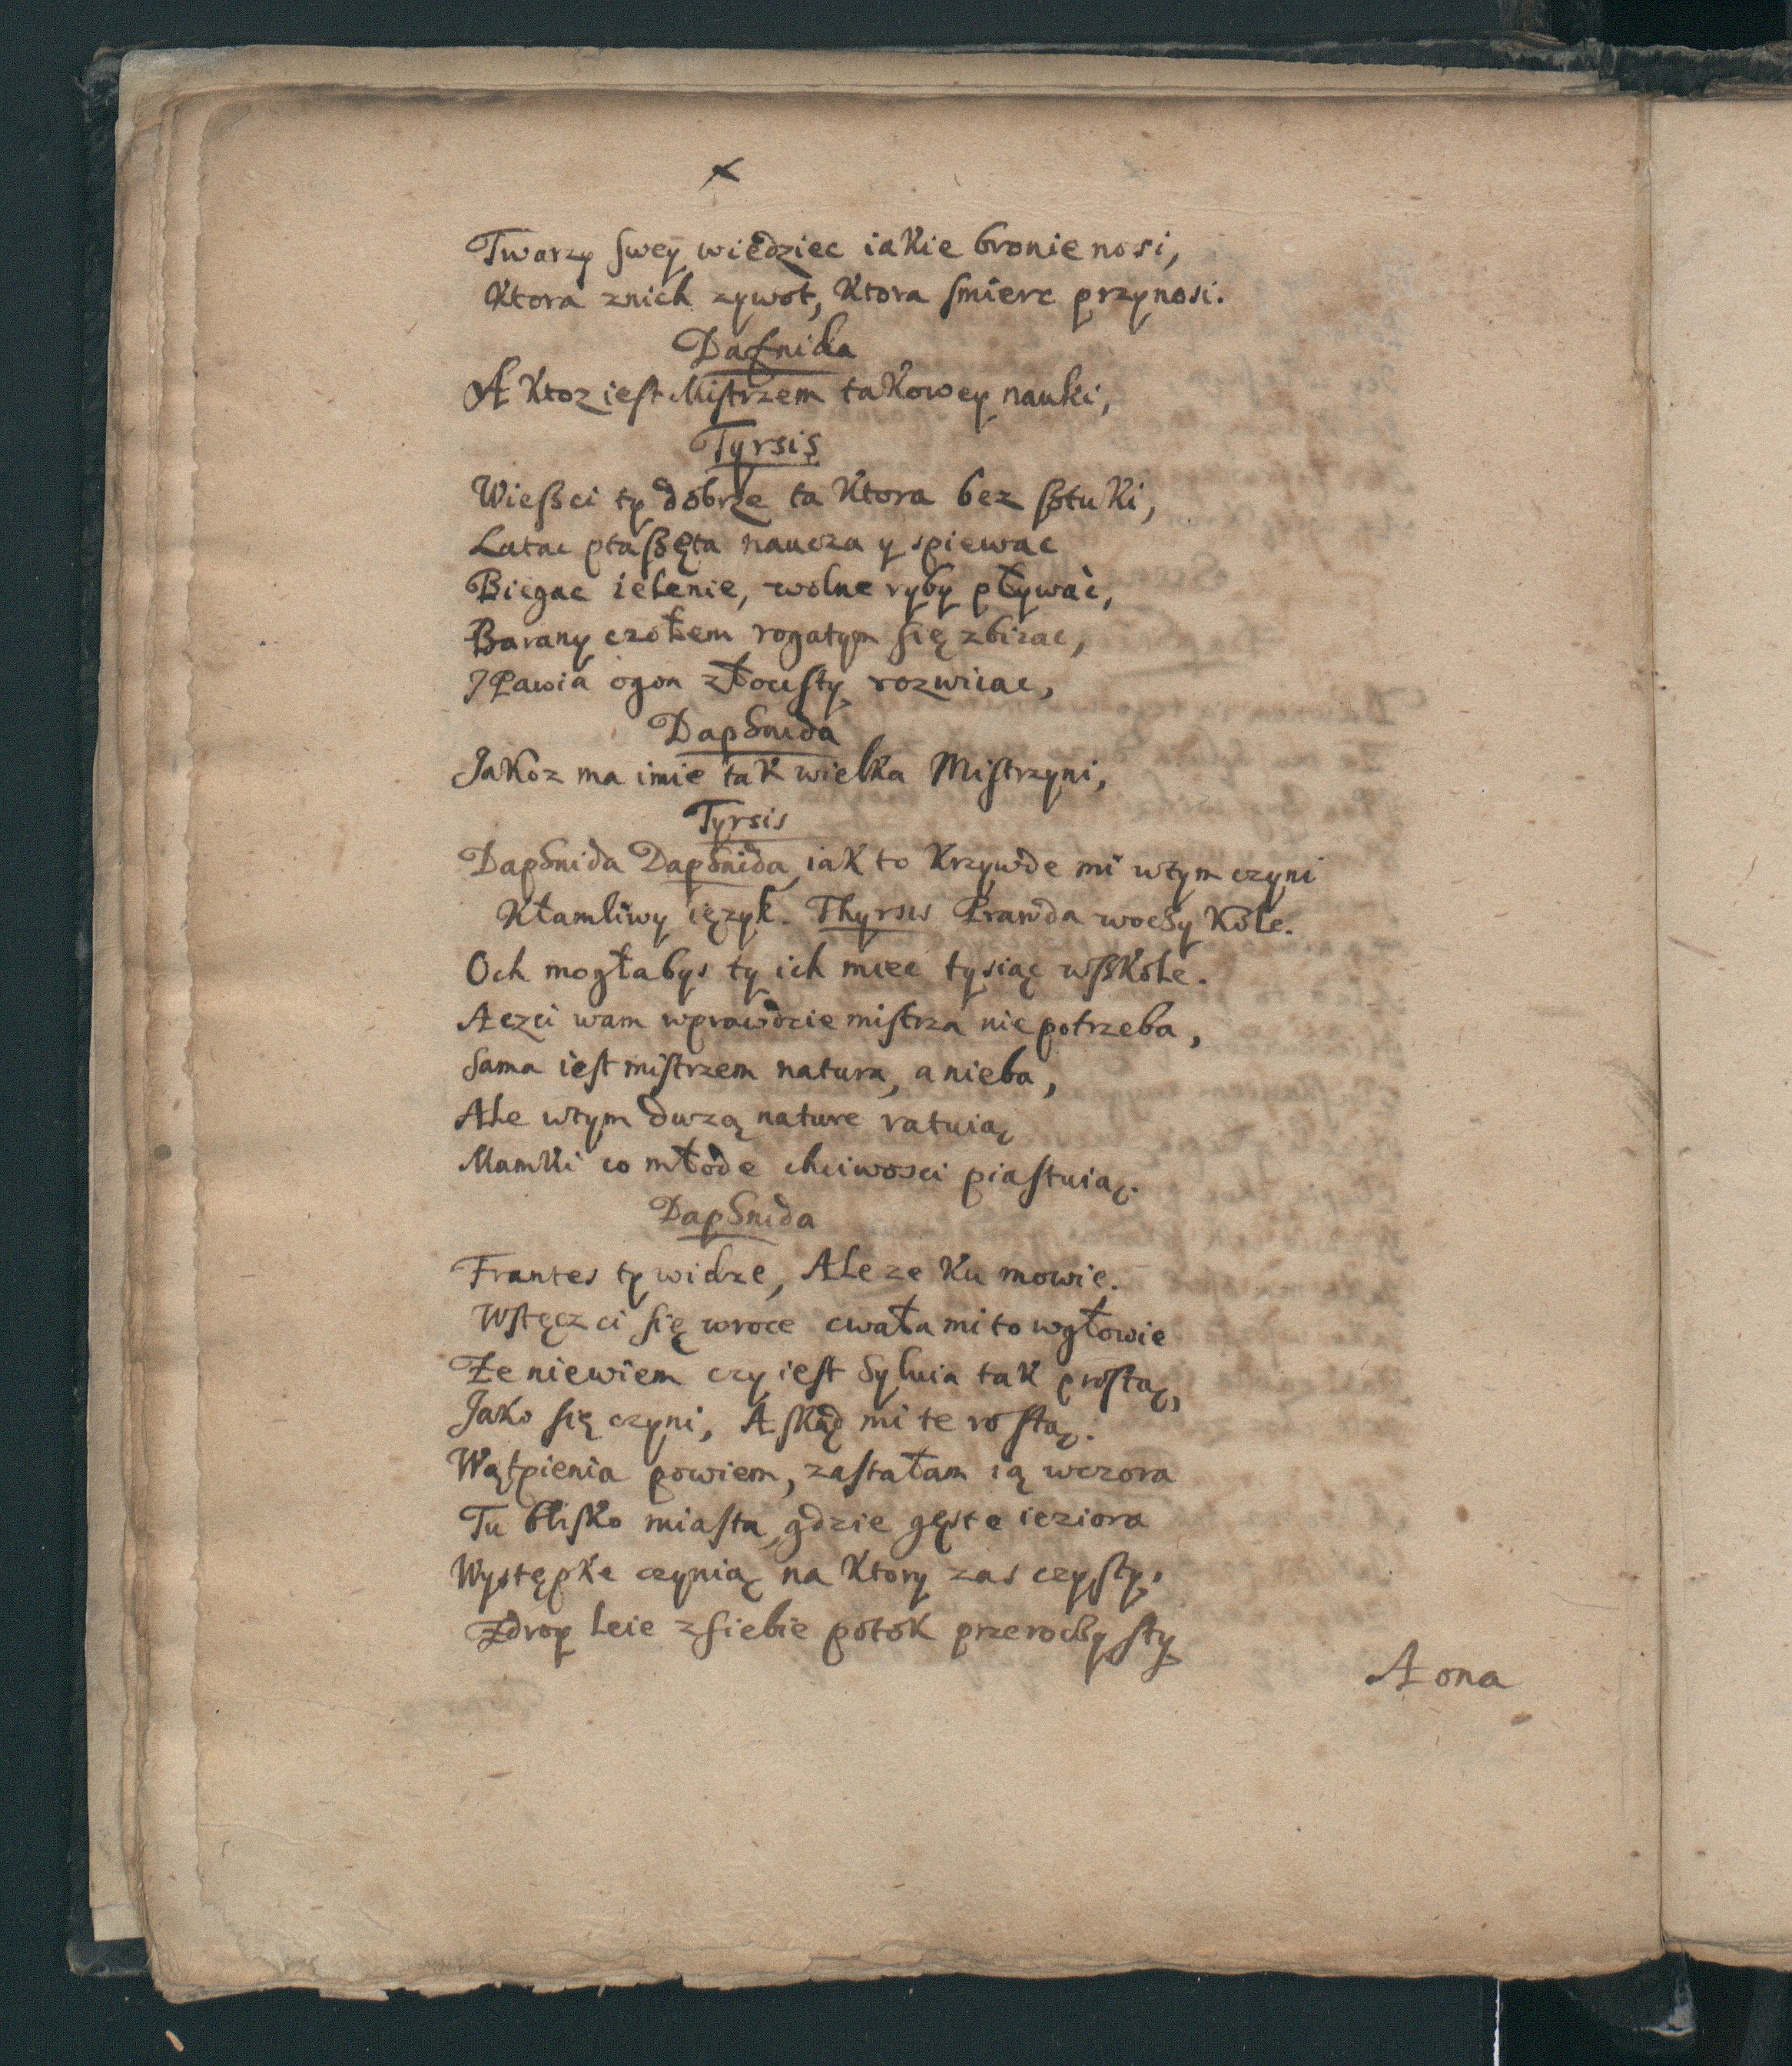 Twarzy swey wiedziec iakie bronie nosi,
Ktora znich zywot, Ktora smierc przynosi.
Dafnida
A Ktoz iest Mistrzem takowey nauki,
Tyrsis
Wieszci ty dobrze ta Ktora bez sztuki,
Latac ptaszęta naucza y spiewac
Biegac ielenie, wolne ryby pływać,
Barany czołem rogatym się zbizac,
J Pawia ogon złocisty rozwiiac,
Daphnida
Jakoz ma imie tak wielka Mistrzyni,
Tyrsis
Daphnida Daphnida, iak to Krzywde mi wtym czyni
Kłamliwy ięzyk. Thyrsis Prawda woczy Kole.
Och mogłabys ty ich miec tysiąc wszkole.
Aczci wam wprawdzie mistrza nie potrzeba,
Sama iest mistrzem natura, a nieba,
Ale wtym duzą nature ratuią
Mamki co młode chciwosci piastuią.
Daphnida
Frantes ty widze, Ale ze Ku mowie.
Wstęcz ci się wroce cwała mi to wgłowie
Ze niewiem czy iest Sylvia tak prostą,
Jako się czyni, A skąd mi te rostą.
Wątpienia powiem, zastałam ią wczora
Tu blisko miasta, gdzie gęste ieziora
Występke czynią na Ktory zas czysty,
Zdroy leie zsiebie potok przeroczysty
A ona